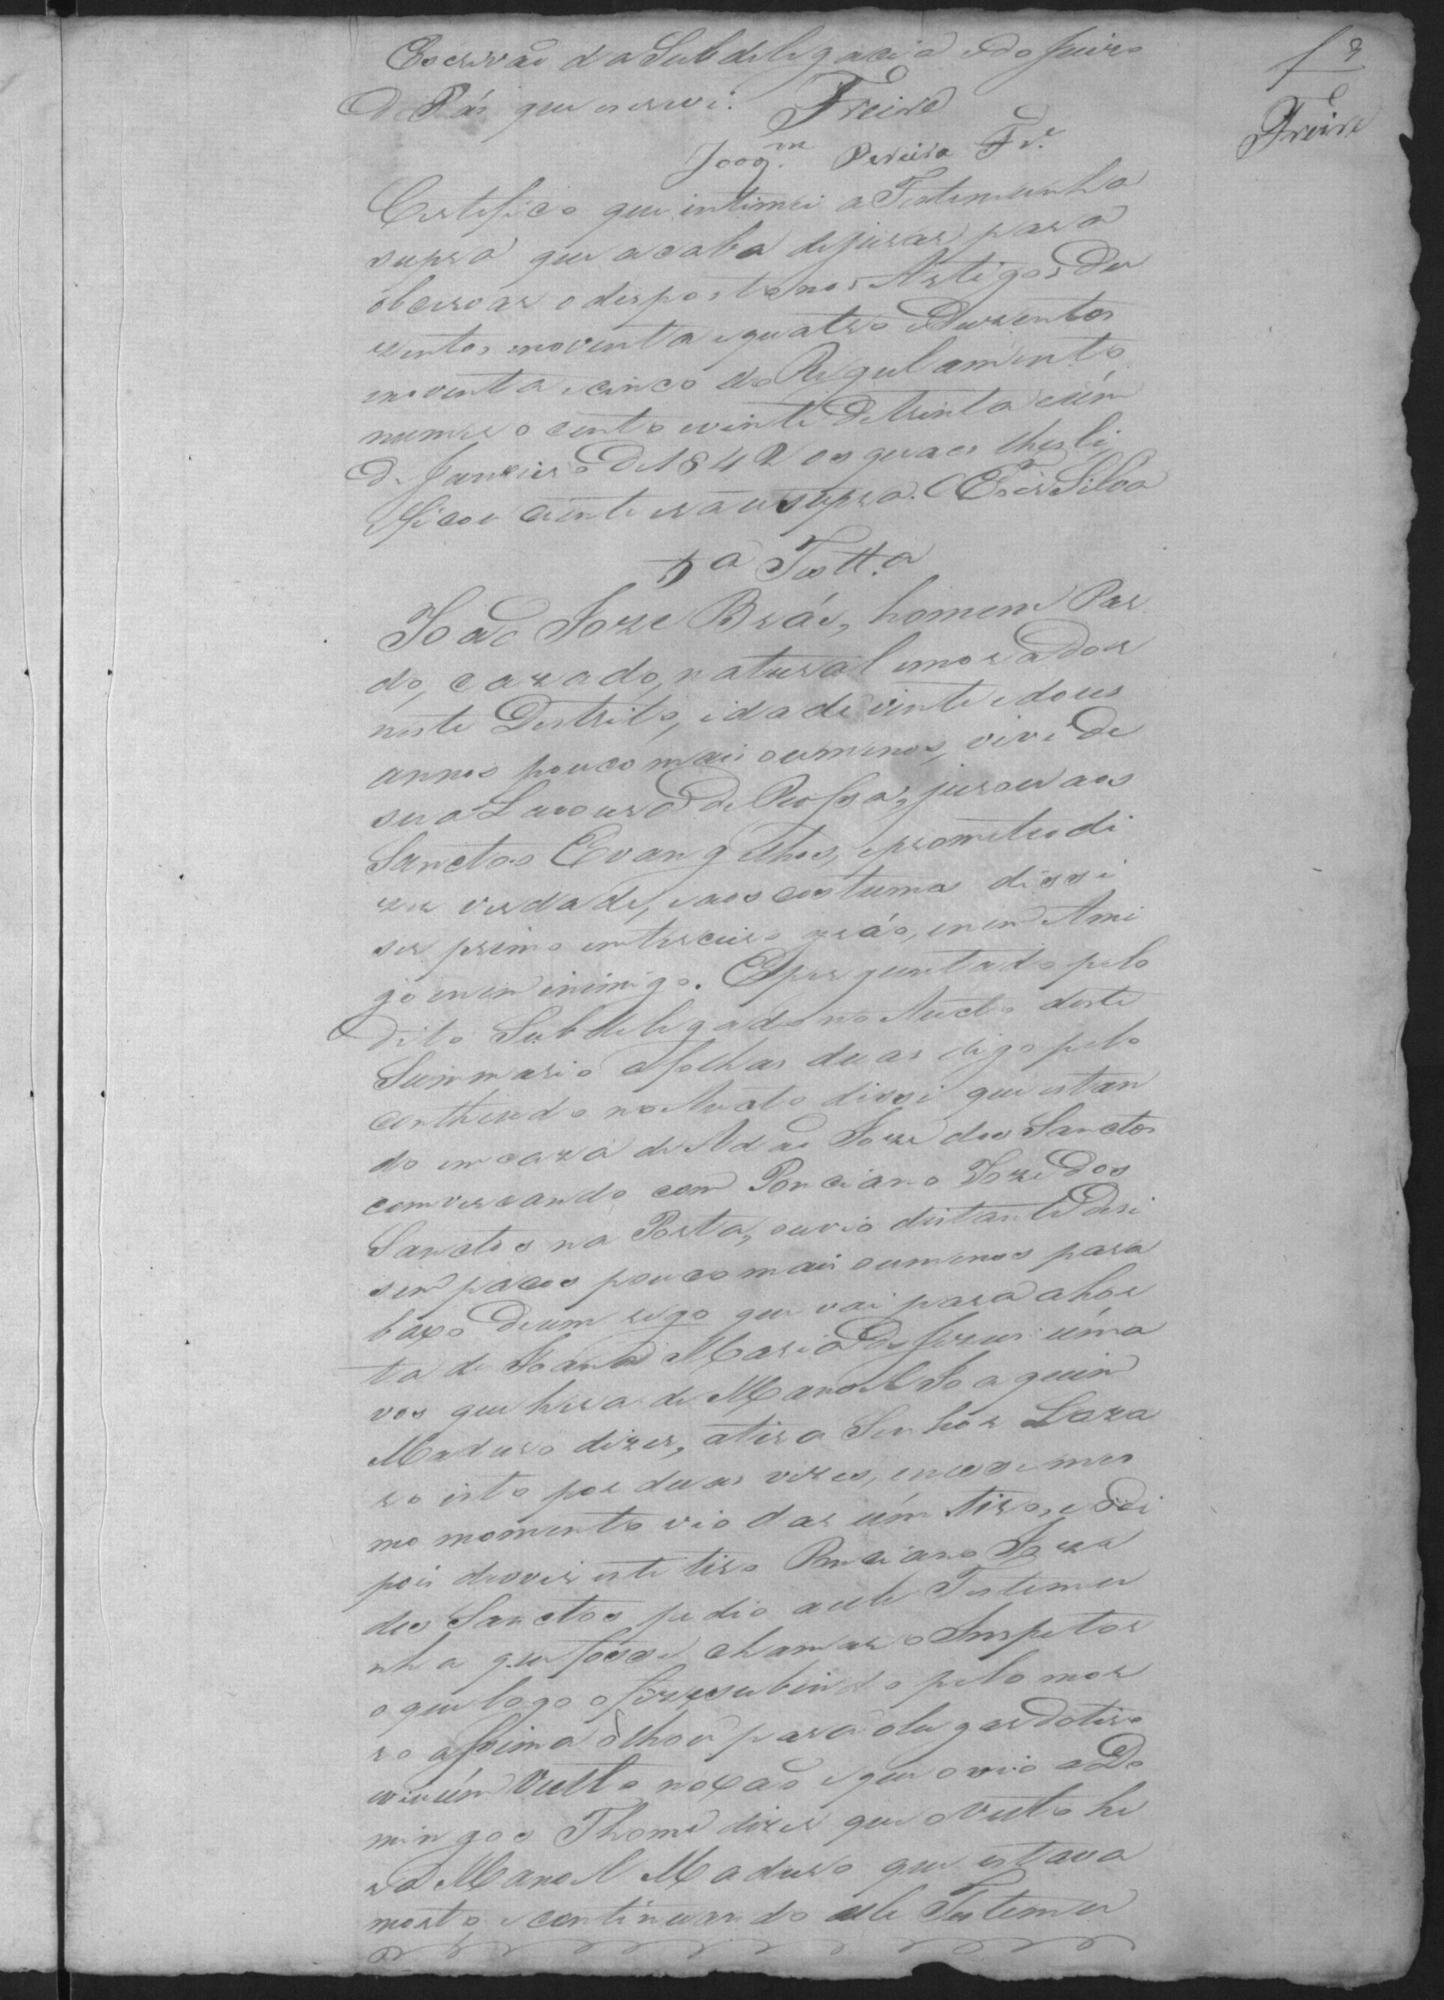 Escrivão da Subdelegacia e do Juizo
de Pás que escrevi. Freire
Joaq.m Pereira Fr.e
Freire
Certifico que intimei a Testemunha
supra que acaba de jurar para
obcervar o disposto nos Artigos Du
zentos enoventa equatro e Duzentos
enoventa ecinco do Regulamento
numero cento evinte de trinta eúm
de Janeiro de 1842 os quaes lhes li,
eficou ciente era ut supra. O Esc.am Silva
5a Test.a
João Joze Brás, homem Par
do, cazado, natural emorador
neste Destrito, idade vinte edous
annos pouco mais oumenos, vive de
sua Lavoura de Rossa, jurou aos
Sanctos Evangelhos, eprometeo di
zer verdade, eaos costumes disse
ser primo emterceiro gráo, enem Ami
go enem inimigo. E perguntado pelo
dito Subdelegado no Aucto deste
Summario afolhas duas digo pelo
contheudo no Aucto disse que estan
do em caza de Adão Joze dos Sanctos
comvercando com Ponciano Joze dos
Sanctos na Porta, ouvio distante Desi
sem pacos pouco mais oumenos para
baxo deum rego que vai para ahor
ta de Joanna Maria de Jezus úma
vos que hera de Manoel Joaquim
Maduro dizer, atira Senhor Laza
ro isto por duas vezes, enesse mes
mo momento vio dar úm tiro, e de
pois deouvir este tiro Ponciano Joze
dos Sanctos pedio aele Testemu
nha que fosse chamar o Inspetor
o que logo ofez, esubindo pelo mor
ro assima ólhou para olugar dotiro
eviu úm Vulto noxão eque ouvio a Do
mingos Thome dizer que o Vulto he
ra Manoel Maduro que estava
morto, econtinuando ele Testemu